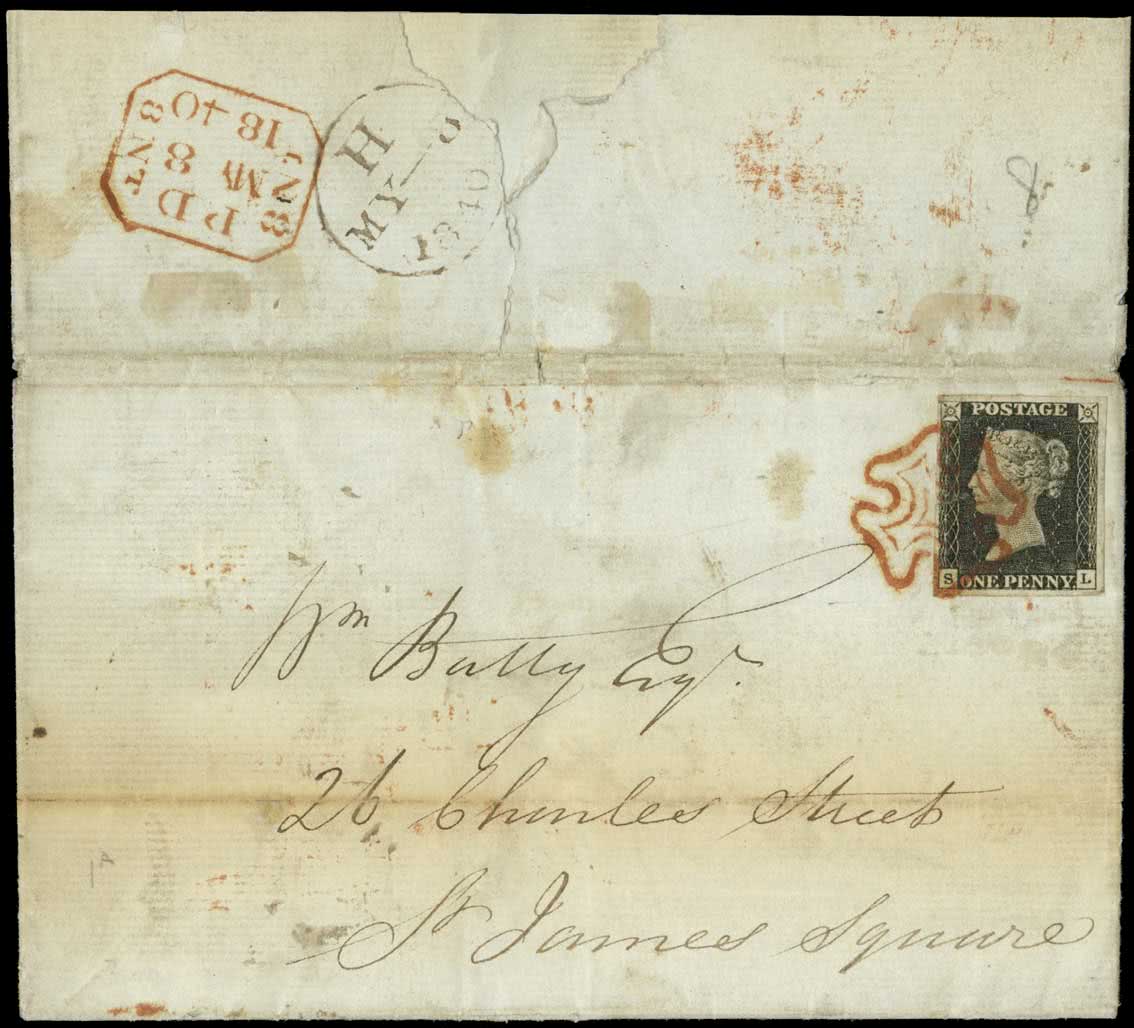 18 40
MY 8
PD
8 NT
8 NT
H
MY
1840
POSTAGE
S ONE PENNY. L
Wm Batty Esqr.
26 Charles Street
St James Square